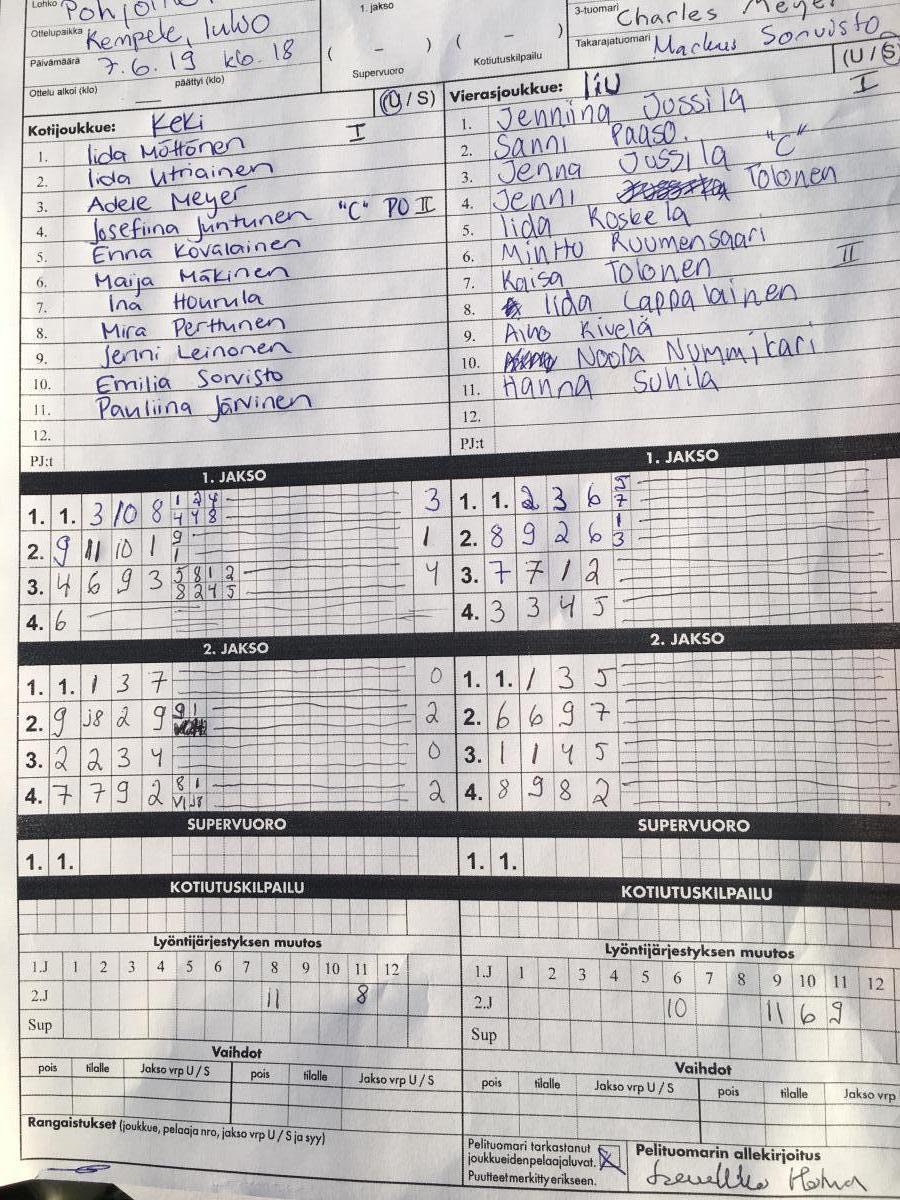 Lohko Pohjoinen
Ottelupaikka Kempele, lukio
Päivämäärä 7.6.19 klo. 18
Ottelu alkoi (klo) — päättyi (klo)
1. jakso
( – )
Supervuoro
( – )
Kotiutuskilpailu
3-tuomari Charles Meyer
Takarajatuomari Markus Sorvisto
Kotijoukkue: KeKi (U/S)
1. Iida Möttönen I
2. Iida Utriainen
3. Adele Meyer
4. Josefiina Juntunen "C" PO II
5. Enna Kovalainen
6. Maija Mäkinen
7. Ina Hourula
8. Mira Perttunen
9. Jenni Leinonen
10. Emilia Sorvisto
11. Pauliina Järvinen
12.
PJ:t
Vierasjoukkue: liU (U/S)
1. Jenniina Jussila I
2. Sanni Paaso.
3. Jenna Jussila "C"
4. Jenni Tolonen
5. Iida Koskela
6. Minttu Ruumensaari
7. Kaisa Tolonen II
8. Iida Lappalainen
9. Aino Kivelä
10. Noora Nummikari
11. Hanna Suhila
12.
PJ:t
1. JAKSO
1. 1. 3 10 8 1 2 4 3
4 4 8
2. 9 11 10 1 9 1
1
3. 4 6 9 3 5 8 1 2 4
8 2 4 5
4. 6
1. JAKSO
1. 1. 2 3 6 5
7
2. 8 9 2 6 1
3
3. 7 7 1 2
4. 3 3 4 5
2. JAKSO
1. 1. 1 3 7 0
2. 9 j8 2 9 9 1 2
3. 2 2 3 4 0
4. 7 7 9 2 8 1 2
VI J8
2. JAKSO
1. 1. 1 3 5
2. 6 6 9 7
3. 1 1 4 5
4. 8 9 8 2
SUPERVUORO
1. 1.
SUPERVUORO
1. 1.
KOTIUTUSKILPAILU
KOTIUTUSKILPAILU
Lyöntijärjestyksen muutos
1.J 1 2 3 4 5 6 7 8 9 10 11 12
2.J 11 8
Sup
Lyöntijärjestyksen muutos
1.J 1 2 3 4 5 6 7 8 9 10 11 12
2.J 10 11 6 9
Sup
Vaihdot
pois tilalle Jakso vrp U / S pois tilalle Jakso vrp U / S
Vaihdot
pois tilalle Jakso vrp U / S pois tilalle Jakso vrp
Rangaistukset (joukkue, pelaaja nro, jakso vrp U / S ja syy)
Pelituomari tarkastanut
joukkueidenpelaajaluvat.
Puutteet merkitty erikseen.
Pelituomarin allekirjoitus